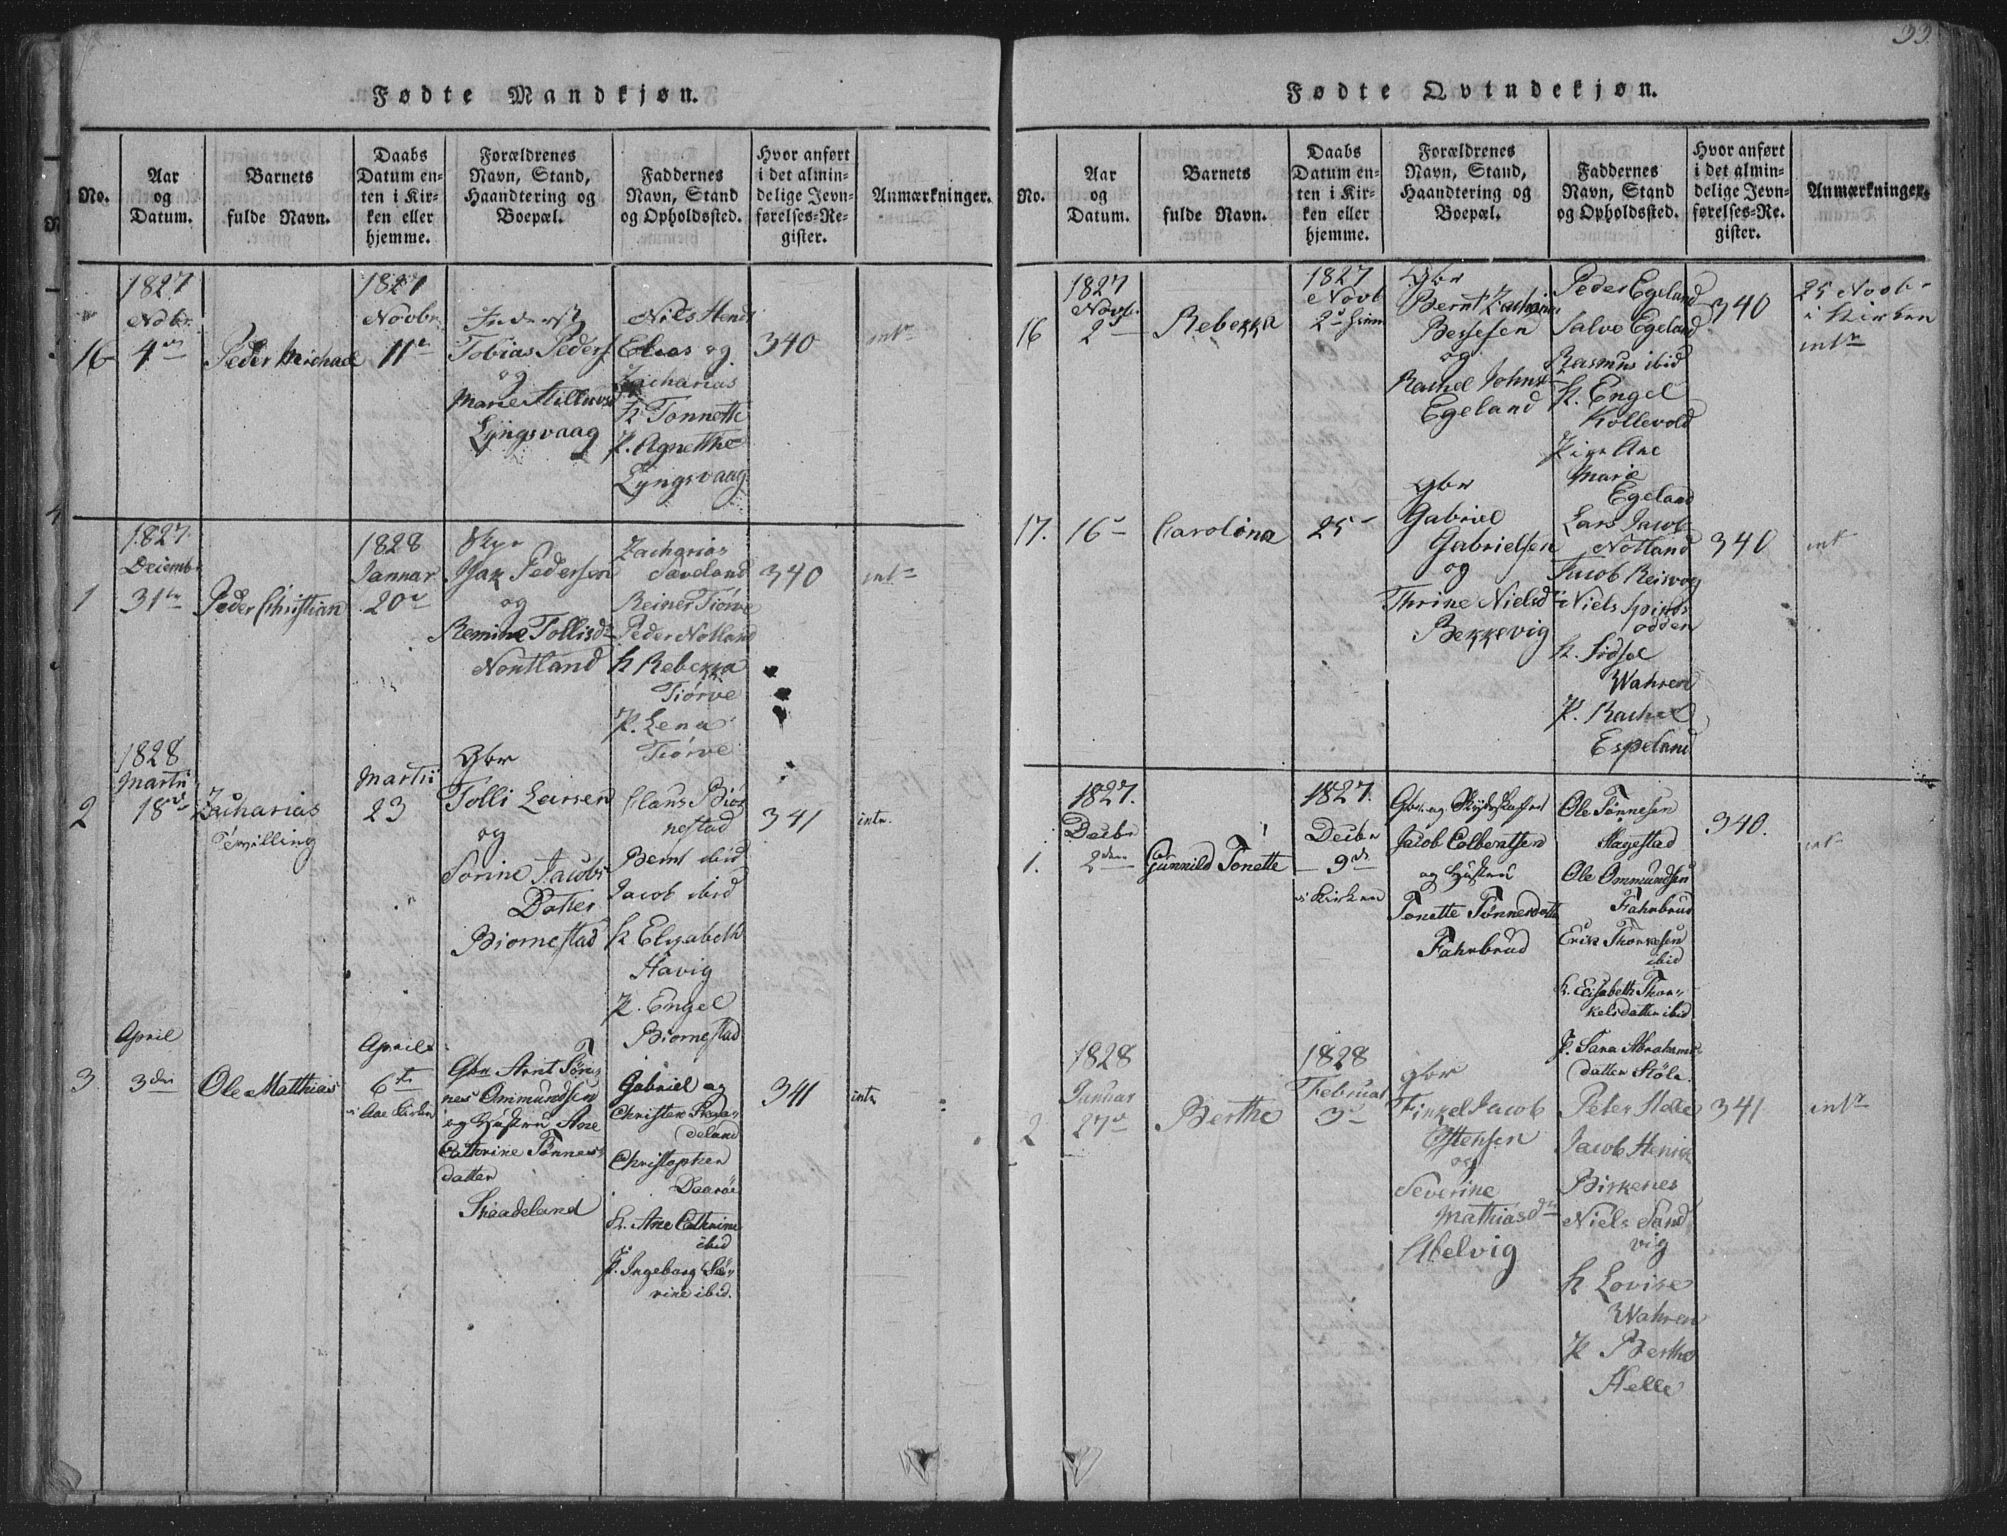 33
Fødte Mandkjøn.
No.
Aar
og
Datum.
Barnets
fulde Navn.
Daabs
Datum en-
ten i Kir-
ken eller
hjemme.
Forældrenes
Navn, Stand,
Haandtering og
Boepæl.
Faddernes
Navn, Stand
og Opholdssted.
Hvor anført
i det almin-
delige Jevn-
førelses-Re-
gister.
Anmærkninger.
1827
Novbr
16
4
Peder Michael
1827
Novbr
11
Tobias Peders
og
Marie
Lyngsvaag
Nils Hend
Elias og
Zacharias
K Tonnette
P. Agnethe
Lyngsvaag
340
int
1827
Decemb
1
31
Peder Christian
1828
Januar
20
Isak Pedersen
og
Remine Tollisd
Noutland
Zacharias
Sæveland
Reiner Tiørve
Peder Notland
K Rebekka
Tiørve
P. Lena
Tiørve
340
int
1828
Martii
2
18
Zacharias
Tvilling
Martii
23
Gbr
Tolli Larsen
og
Sørine Jacobs
Datter
Biørnestad
Claus Biør
nestad
Bernt ibid
Jacob ibid
K Elisabeth
Havig
P. Engel
Biørnestad
341
int
April
3
3die
Ole Matthias
April
6te
i Kirken
Gbr Arnt Tøn-
nes Ommundsen
og Hustru Ane
Cathrine Tønnes-
datter
Skaadeland
Gabriel og
Christen Skaa-
deland
Christopher
Daarøe
K. Ane Cathrine
ibid
P. Ingeborg Se-
rine ibid.
341
int
Fødte Qvindekjøn.
No.
Aar
og
Datum.
Barnets
fulde Navn.
Daabs
Datum en-
ten i Kir-
ken eller
hjemme.
Forældrenes
Navn, Stand,
Haandtering og
Boepæl.
Faddernes
Navn, Stand
og Opholdssted.
Hvor anført
i det almin-
delige Jevn-
førelses-Re-
gister.
Anmærkninger.
1827
Novbr
16
2
Rebekka
1827
Novb
2
Gbr
Bernt Zacharias
Bessesen
og
Rachel Johns
Egeland
Peder Egeland
Salve Egeland
Rasmus ibid
K. Engel
Kollevold
Pige Ane
Marie
Egeland
340
25 Novbr
i Kirken
int
17.
16
Carolina
25
Gbr
Gabriel
Gabrielsen
og
Thrine Nielsd
Bekkevig
Lars Jacob
Notland
Jacob Reisvog
Niels Spids
odden
K. Sidsel
Wahren
P. Rachel
Espeland
340
int
1827.
Decbr
1.
2den
Gunnild Tonette
1827.
Decbr
9de
i Kirken
Gbr. og
Jacob Colbentsen
og Hustru
Tonette Tønnesdatter
Fahrbrud
Ole Tønnesen
Stagestad
Ole Ommundsen
Fahrbrud
Erik Thorkesen
ibid
K. Elisabeth Thor-
kelsdatter ibid
P. Sara Abrahams-
datter Støle
340.
int
1828
Januar
2
27
Berthe
1828
Februar
3
Gbr
Finkel Jacob
Ostensen
og
Severine
Mathiasd
Abelvig
Peter Helle
Jacob Henrik
Birkenes
Niels Sand
vig
K Lovise
Wahren
P Berthe
Helle
341
int